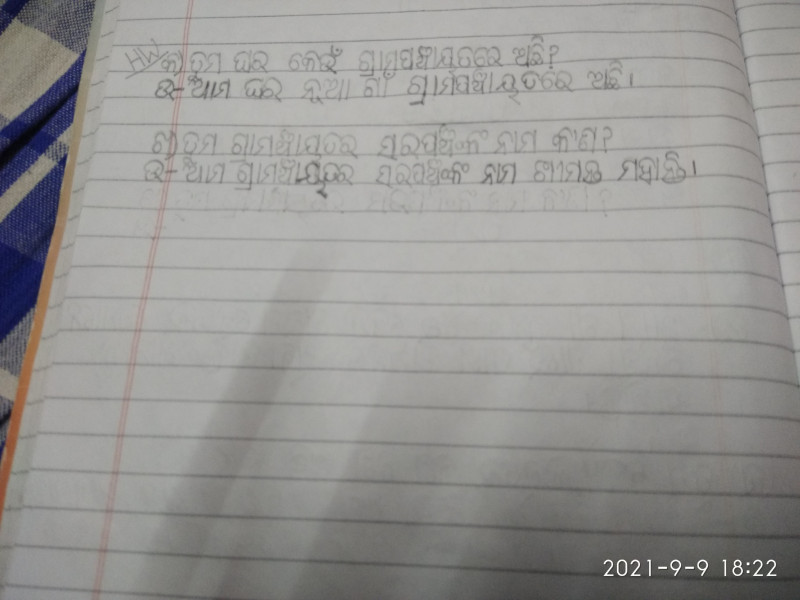 HW
କ) ତୁମ ଘର କେଉଁ ଗ୍ରାମପଞ୍ଚାୟତରେ ଅଛି?
ଉ- ଆମ ଘର ନୂଆ ଗାଁ ଗ୍ରାମପଞ୍ଚାୟତରେ ଅଛି।
ଖ) ତୁମ ଗ୍ରାମପଞ୍ଚାୟତରେ ସରପଞ୍ଚଙ୍କ ନାମ କ'ଣ?
ଉ- ଆମ ଗ୍ରାମପଞ୍ଚାୟତରେ ସରପଞ୍ଚଙ୍କ ନାମ ମହାନ୍ତି।
2021-9-9 18:22